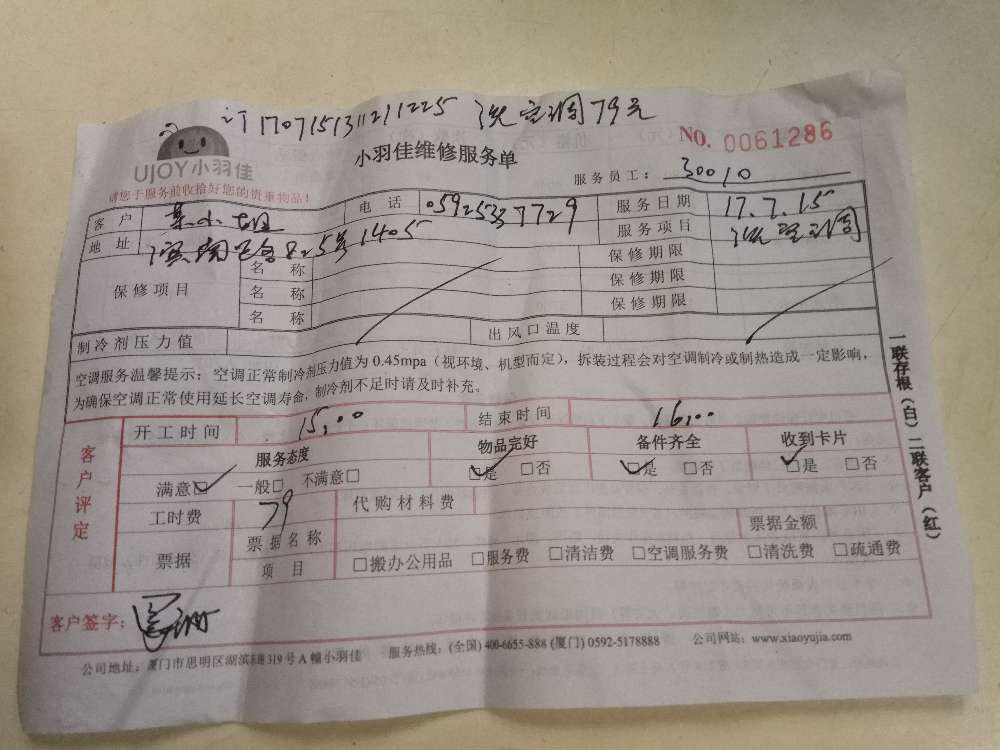 订170715131121225 洗空调79元
UJOY小羽佳
小羽佳维修服务单
NO. 0061286
请您于服务前收拾好您的贵重物品!
服务员工: 30010
客户 小姐 电话 05925337729 服务日期 17.7.15
地址 5号1405 服务项目 洗空调
保修项目 名称 保修期限
名称 保修期限
名称 保修期限
制冷剂压力值 出风口温度
空调服务温馨提示: 空调正常制冷剂压力值为 0.45mpa (视环境、机型而定), 拆装过程会对空调制冷或制热造成一定影响,
为确保空调正常使用延长空调寿命, 制冷剂不足时请及时补充。
客户评定 开工时间 15:00 结束时间 16:00
服务态度 物品完好 备件齐全 收到卡片
满意□ 一般□ 不满意□ □是 □否 □是 □否 □是 □否
工时费 79 代购材料费
票据 票据名称 票据金额
项目 □搬办公用品 □服务费 □清洁费 □空调服务费 □清洗费 □疏通费
客户签字:
公司地址: 厦门市思明区湖滨南路319号A幢小羽佳 服务热线: (全国) 400-6655-888 (厦门) 0592-5178888 公司网站: www.xiaoyujia.com
一联存根(白) 二联客户(红)